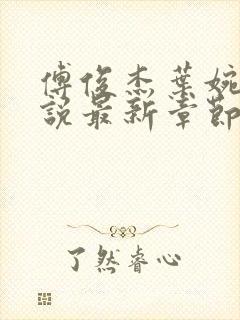 傅俊杰葉婉
說最新章節
了然睿心